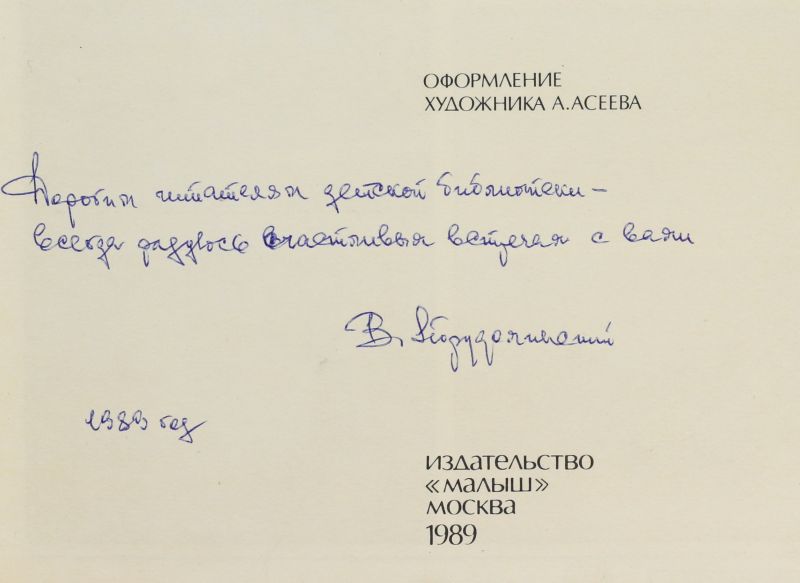 ОФОРМЛЕНИЕ
ХУДОЖНИКА А.АСЕЕВА
читателям детской библиотеки –
всегда радуюсь счастливым встречам с вами
В.
1989 год
ИЗДАТЕЛЬСТВО
«МАЛЫШ»
МОСКВА
1989